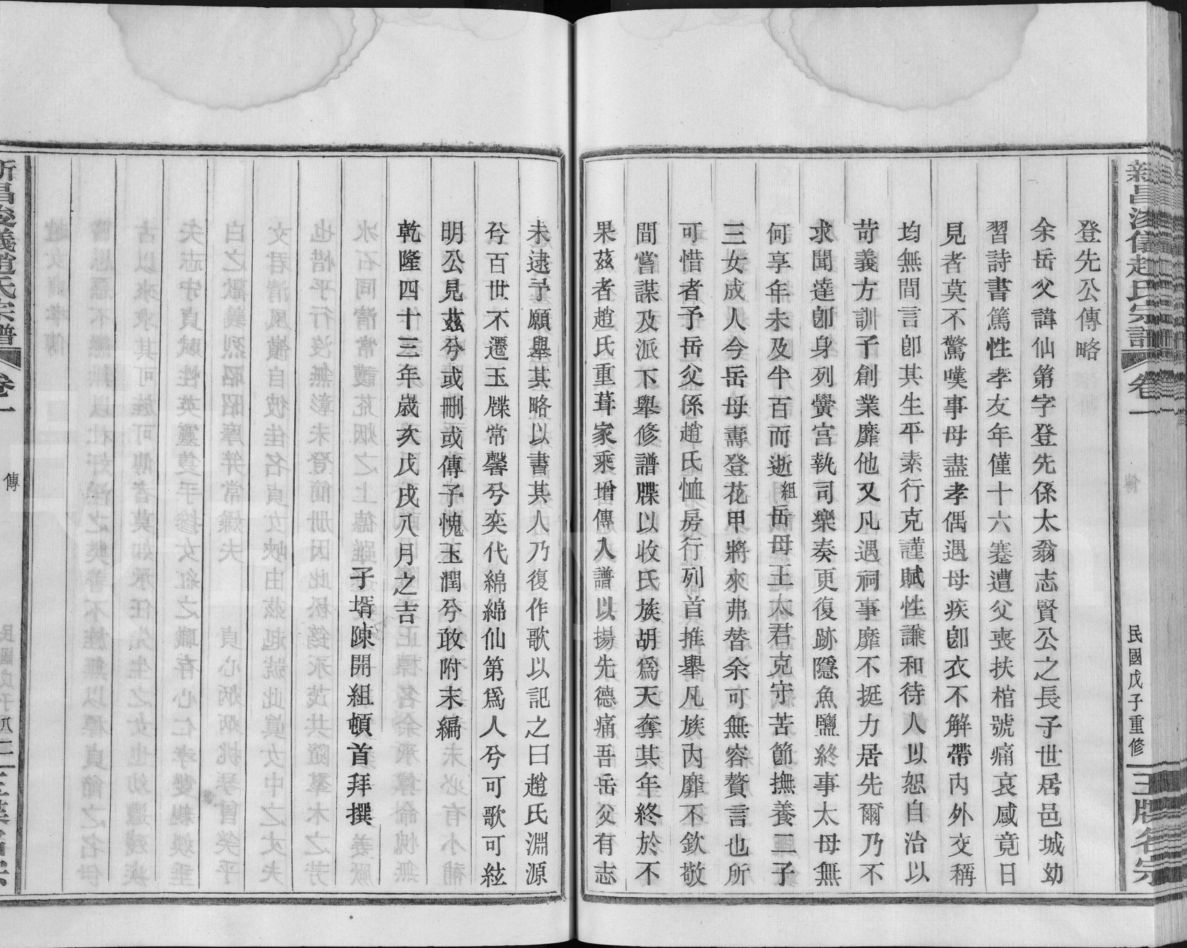 登先公傳略
余岳父諱仙第字登先係太翁志賢公之長子世居邑城幼
習詩書篤性孝友年僅十六蹇遭父喪扶棺號痛哀感竟日
見者莫不驚嘆事母盡孝偶遇母疾卽衣不解帶內外交稱
均無間言卽其生平素行克謹賦性謙和待人以恕自治以
苛義方訓子創業靡他又凡遇祠事靡不挺力居先爾乃不
求聞達卽身列黌宮執司樂奏更復跡隱魚鹽終事太母無
何享年未及半百而逝組岳母王太君克守苦節撫養二子
三女成人今岳母壽登花甲將來弗替余可無容贅言也所
可惜者予岳父係趙氏恤房行列首推舉凡族內靡不欽敬
間嘗謀及派下舉修譜牒以收氏族胡爲天奪其年終於不
果茲者趙氏重葺家乘增傳入譜以揚先德痛吾岳父有志
未逮予願舉其略以書其人乃復作歌以記之曰趙氏淵源
兮百世不遷玉牒常馨兮奕代綿綿仙第爲人兮可歌可絃
明公見茲兮或刪或傳予愧玉潤兮敢附末編
乾隆四十三年歲次戊戌八月之吉
子壻陳開組頓首拜撰
趙氏宗譜
卷一
民國戊子重修
新昌
義趙氏宗譜
卷一
傳